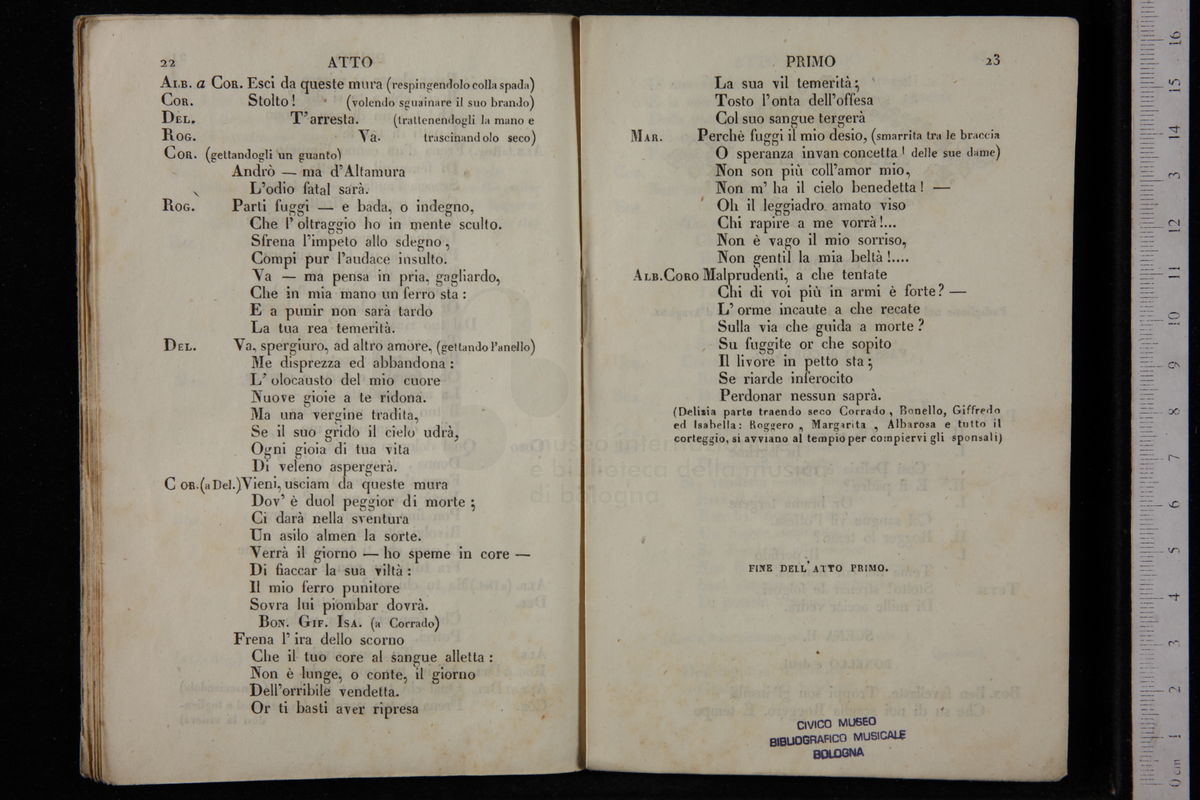 22 ATTO
ALB. a COR. Esci da queste mura (respingendolo colla spada)
COR. Stolto! (volendo sguainare il suo brando)
DEL. T'arresta. (trattenendogli la mano e
ROG. Va. trascinandolo seco)
COR. (gettandogli un guanto)
Andrò — ma d'Altamura
L'odio fatal sarà.
ROG. Parti fuggi — e bada, o indegno,
Che l'oltraggio ho in mente sculto.
Sfrena l'impeto allo sdegno,
Compi pur l'audace insulto.
Va — ma pensa in pria, gagliardo,
Che in mia mano un ferro sta:
E a punir non sarà tardo
La tua rea temerità.
DEL. Va, spergiuro, ad altro amore, (gettando l'anello)
Me disprezza ed abbandona:
L'olocausto del mio cuore
Nuove gioie a te ridona.
Ma una vergine tradita,
Se il suo grido il cielo udrà,
Ogni gioia di tua vita
Di veleno aspergerà.
COR. (a Del.) Vieni, usciam da queste mura
Dov'è duol peggior di morte;
Ci darà nella sventura
Un asilo almen la sorte.
Verrà il giorno — ho speme in core —
Di fiaccar la sua viltà:
Il mio ferro punitore
Sovra lui piombar dovrà.
BON. GIF. ISA. (a Corrado)
Frena l'ira dello scorno
Che il tuo core al sangue alletta:
Non è lunge, o conte, il giorno
Dell'orribile vendetta.
Or ti basti aver ripresa
PRIMO 23
La sua vil temerità;
Tosto l'onta dell'offesa
Col suo sangue tergerà
MAR. Perchè fuggi il mio desio, (smarrita tra le braccia
O speranza invan concetta! delle sue dame)
Non son più coll'amor mio,
Non m'ha il cielo benedetta! —
Oh il leggiadro amato viso
Chi rapire a me vorrà!...
Non è vago il mio sorriso,
Non gentil la mia beltà!....
ALB. CORO Malprudenti, a che tentate
Chi di voi più in armi è forte? —
L'orme incaute a che recate
Sulla via che guida a morte?
Su fuggite or che sopito
Il livore in petto sta;
Se riarde inferocito
Perdonar nessun saprà.
(Delizia parte traendo seco Corrado, Bonello, Giffredo
ed Isabella: Roggero, Margarita, Albarosa e tutto il
corteggio, si avviano al tempio per compiervi gli sponsali)
FINE DELL'ATTO PRIMO.
CIVICO MUSEO
BIBLIOGRAFICO MUSICALE
BOLOGNA
museo internazionale
e biblioteca della musica
di bologna
0 cm 1 2 3 4 5 6 7 8 9 10 11 12 13 14 15 16